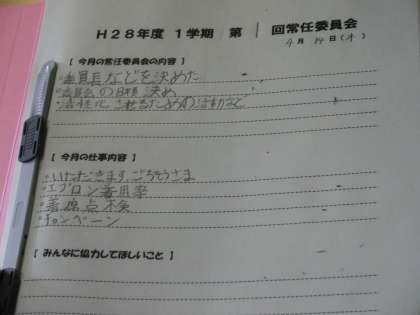 H28年度 1学期 第1回常任委員会
4月14日(木)
[今月の常任委員会の内容]
・委員長などを決めた
・委員会の目標決め
・活性化させるための活動など
[今月の仕事内容]
・いただきます、ごちそうさま
・エプロン着用率
・着席点検
・キャンペーン
[みんなに協力してほしいこと]